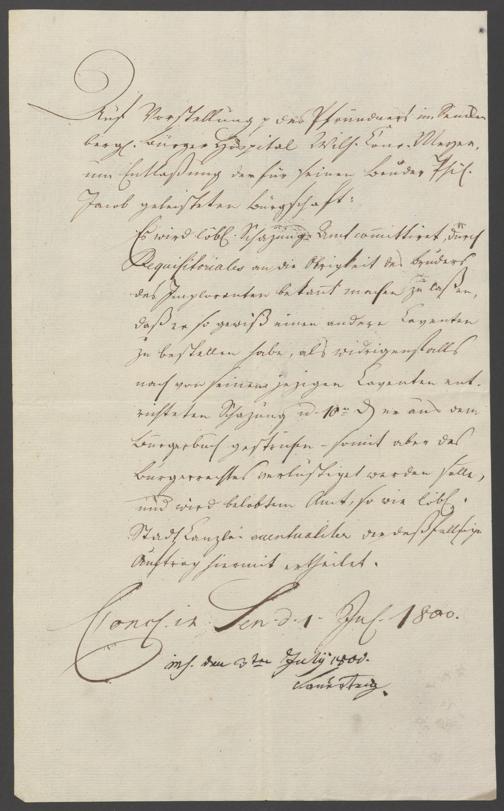 Auf Vorstellung p des Pfründners im Sencken
bergl. Bürger Hospital Wilh. Conr. Meyer,
um Entlaßung der für seinen Bruder Phil.
Jacob geleisteten Bürgschaft:
Es wird löbl. Schazungs Amt comittiret, durch
Requisitoriales an die Obrigkeit des Bruders
des Imploranten bekannt machen zu laßen,
daß er so gewiß einen andern Caventen
zu bestellen habe, als widrigenfalls
nach von seinem jezigen Caventen ent-
richteten Schazung u. 10 er aus dem
Bürgerbuch gestrichen - somit aber des
Bürgerrechtes verlüstiget werden solle,
und wird belobtem Amt, so wie löbl.
Stadt Kanzlei eventualiter der deßfallsige
Auftrag hiermit ertheilet.
Concl. in Sen. d. 1. Jul. 1800.
ins. den 3ten July 1800.